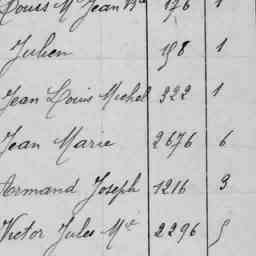 Louis Mie Jean Bte 176 1
Julien 158 1
Jean Louis Michel 322 1
Jean Marie 2676 6
Armand Joseph 1216 3
Victor Jules Mie 2296 5